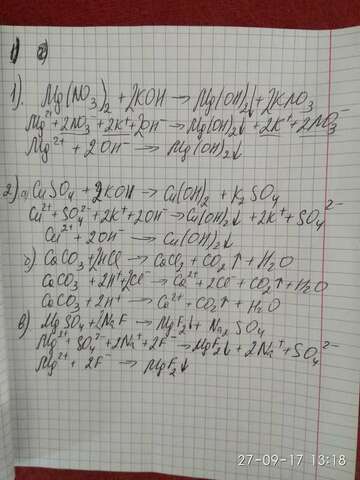 1).
Mg(NO3)2 + 2KOH → Mg(OH)2↓ + 2KNO3
Mg²⁺ + 2NO3⁻ + 2K⁺ + 2OH⁻ → Mg(OH)2↓ + 2K⁺ + 2NO3⁻
Mg²⁺ + 2OH⁻ → Mg(OH)2↓
2.) а) CuSO4 + 2KOH → Cu(OH)2 + K2SO4
Cu²⁺ + SO4²⁻ + 2K⁺ + 2OH⁻ → Cu(OH)2↓ + 2K⁺ + SO4²⁻
Cu²⁺ + 2OH⁻ → Cu(OH)2↓
б) CaCO3 + 2HCl → CaCl2 + CO2↑ + H2O
CaCO3 + 2H⁺ + 2Cl⁻ → Ca²⁺ + 2Cl⁻ + CO2↑ + H2O
CaCO3 + 2H⁺ → Ca²⁺ + CO2↑ + H2O
в) MgSO4 + 2NaF → MgF2↓ + Na2SO4
Mg²⁺ + SO4²⁻ + 2Na⁺ + 2F⁻ → MgF2↓ + 2Na⁺ + SO4²⁻
Mg²⁺ + 2F⁻ → MgF2↓
27-09-17 13:18